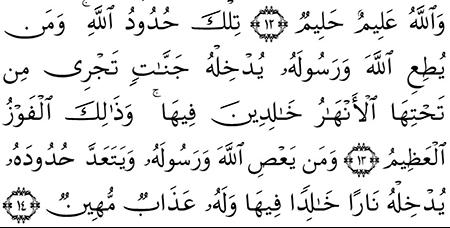 وَٱللَّهُ عَلِيمٌ حَلِيمٌ ١٢ تِلْكَ حُدُودُ ٱللَّهِ ۚ وَمَن
يُطِعِ ٱللَّهَ وَرَسُولَهُۥ يُدْخِلْهُ جَنَّـٰتٍ تَجْرِى مِن
تَحْتِهَا ٱلْأَنْهَـٰرُ خَـٰلِدِينَ فِيهَا ۚ وَذَٰلِكَ ٱلْفَوْزُ
ٱلْعَظِيمُ ١٣ وَمَن يَعْصِ ٱللَّهَ وَرَسُولَهُۥ وَيَتَعَدَّ حُدُودَهُۥ
يُدْخِلْهُ نَارًا خَـٰلِدًا فِيهَا وَلَهُۥ عَذَابٌ مُّهِينٌ ١٤